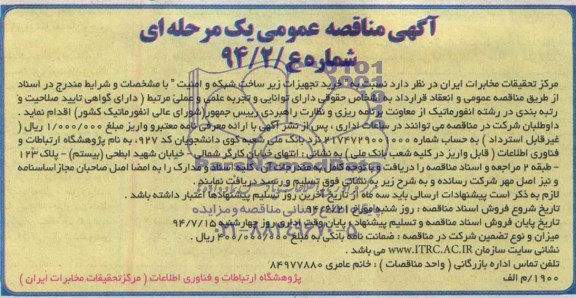 آگهی مناقصه عمومی یک مرحله ای
شماره ع/۹۴/۲
مرکز تحقیقات مخابرات ایران در نظر دارد نسبت به " خرید تجهیزات زیر ساخت شبکه و امنیت " با مشخصات و شرایط مندرج در اسناد
از طریق مناقصه عمومی و انعقاد قرارداد به اشخاص حقوقی دارای توانایی و تجربه علمی و عملی مرتبط ( دارای گواهی تایید صلاحیت و
رتبه بندی در رشته انفورماتیک از معاونت برنامه ریزی و نظارت راهبردی رییس جمهور/شورای عالی انفورماتیک کشور) اقدام نماید .
داوطلبان شرکت در مناقصه می توانند در ساعات اداری ، پس از نشر آگهی با ارائه معرفی نامه معتبر و واریز مبلغ ۱/۰۰۰/۰۰۰ ریال (
غیرقابل استرداد ) به حساب شماره نزد بانک ملی شعبه کوی دانشجویان کد ۹۲۷، به نام پژوهشگاه ارتباطات و
فناوری اطلاعات ( قابل واریز در کلیه شعب بانک ملی ) به نشانی : انتهای خیابان کارگر شمالی - خیابان شهید ابطحی (بیستم) - پلاک ۱۲۳
- طبقه ۲ مراجعه و اسناد مناقصه را دریافت و با توجه کامل به مندرجات آن ، کلیه اسناد و مدارک را به امضا اصل صاحبان مجاز اساسنامه
و نیز اصل مهر شرکت رسانده و به شرح زیر به نشانی فوق تسلیم و رسید دریافت نمایند .
لازم به ذکر است پیشنهادات ارسالی باید سه ماه از تاریخ آخرین روز تسلیم پیشنهادها اعتبار داشته باشد .
تاریخ شروع فروش اسناد مناقصه : روز شنبه مورخ
تاریخ پایان فروش اسناد مناقصه و تسلیم پیشنهاد : پایان وقت اداری روز چهارشنبه ۹۴/۷/۱۵
میزان و نوع تضمین شرکت در مناقصه : ضمانت نامه بانکی به مبلغ ریال
نشانی سایت سازمان WWW.ITRC.AC.IR می باشد .
تلفن تماس اداره بازرگانی ( واحد مناقصات ) : خانم عامری ۸۴۹۷۷۸۸۰
۱۹۰۰/م الف
پژوهشگاه ارتباطات و فناوری اطلاعات ( مرکز تحقیقات مخابرات ایران )